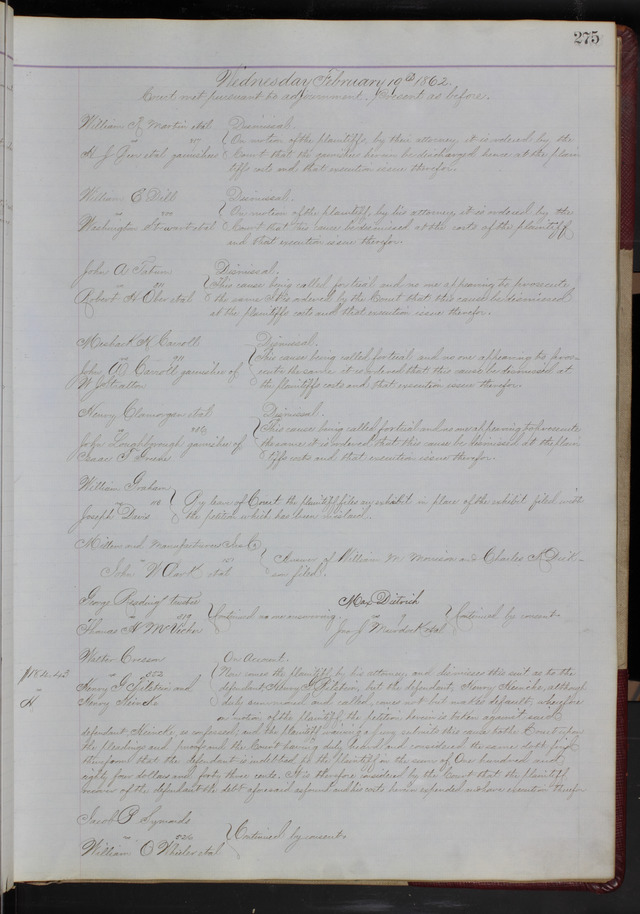 275
Wednesday February 19th 1862.
Court met pursuant to adjournment. Present as before.
William A. Martin et al
vs
H. J. et al garnishee
Dismissal.
On motion of the plaintiffs, by their attorney, it is ordered by the
Court that the garnishee herein be discharged hence at the plain
tiffs costs and that execution issue therefor.
William C. Dill
vs
Washington Stewart et al
Dismissal.
On motion of the plaintiff, by his attorney, it is ordered by the
Court that this cause be dismissed at the costs of the plaintiff
and that execution issue therefor.
John A. Tatum
vs
Robert H. Ober et al
Dismissal.
This cause being called for trial and no one appearing to prosecute
the same it is ordered by the Court that this cause be dismissed
at the plaintiffs costs and that execution issue therefor.
Meshack K. Carroll
vs
John Carroll garnishee of
Dismissal.
This cause being called for trial and no one appearing to pros-
ecute the same it is ordered that this cause be dismissed at
the plaintiffs costs and that execution issue therefor.
Henry Clamorgan et al
vs
John Loughborough garnishee of
Isaac T. Greene
Dismissal.
This cause being called for trial and no one appearing to prosecute
the same it is ordered that this cause be dismissed at the plain
tiffs costs and that execution issue therefor.
William Graham
vs 110
Joseph Davis
By leave of Court the plaintiff files an exhibit in place of the exhibit filed with
the petition which has been mislaid.
Millers and Manufacturers Ins Co
vs
John W. Clark et al
Answer of William M. Morrison and Charles Dick-
son filed.
George Reading trustee
vs 219
Thomas H. McVicker
Continued no one answering.
Max Dietrich
vs 9
Jno J. Murdock et al
Continued by consent.
$184.43
H
Walter Cresson
vs 252
Henry G. Filstein and
Henry Heincke
On Account.
Now comes the plaintiff by his attorney, and dismisses this suit as to the
defendant Henry G. Filstein, but the defendant, Henry Heincke, although
duly summoned and called, comes not but makes default, wherefore
on motion of the plaintiff, the petition herein is taken against said
defendant Heincke, as confessed, and the plaintiff waiving a jury submits this cause to the Court upon
the pleadings and proofs and the Court having duly heard and considered the same doth find
therefrom that the defendant is indebted to the plaintiff in the sum of One hundred and
eighty four dollars and forty three cents. It is therefore considered by the Court that the plaintiff
recover of the defendant the debt aforesaid as found and his costs herein expended and have execution therefor
Jacob P. Symonds
vs 526
William C. Wheeler et al
Continued by consent.